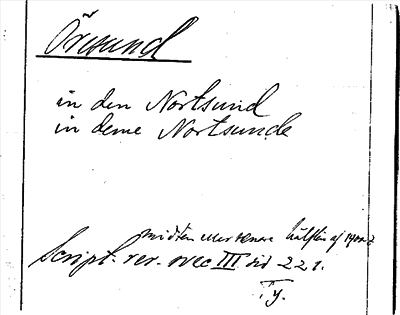 Öresund
in den Nortsund
in deme Nortsunde
midten eller senare hälften af
Script. rer. svec III sid 221.
Ty.